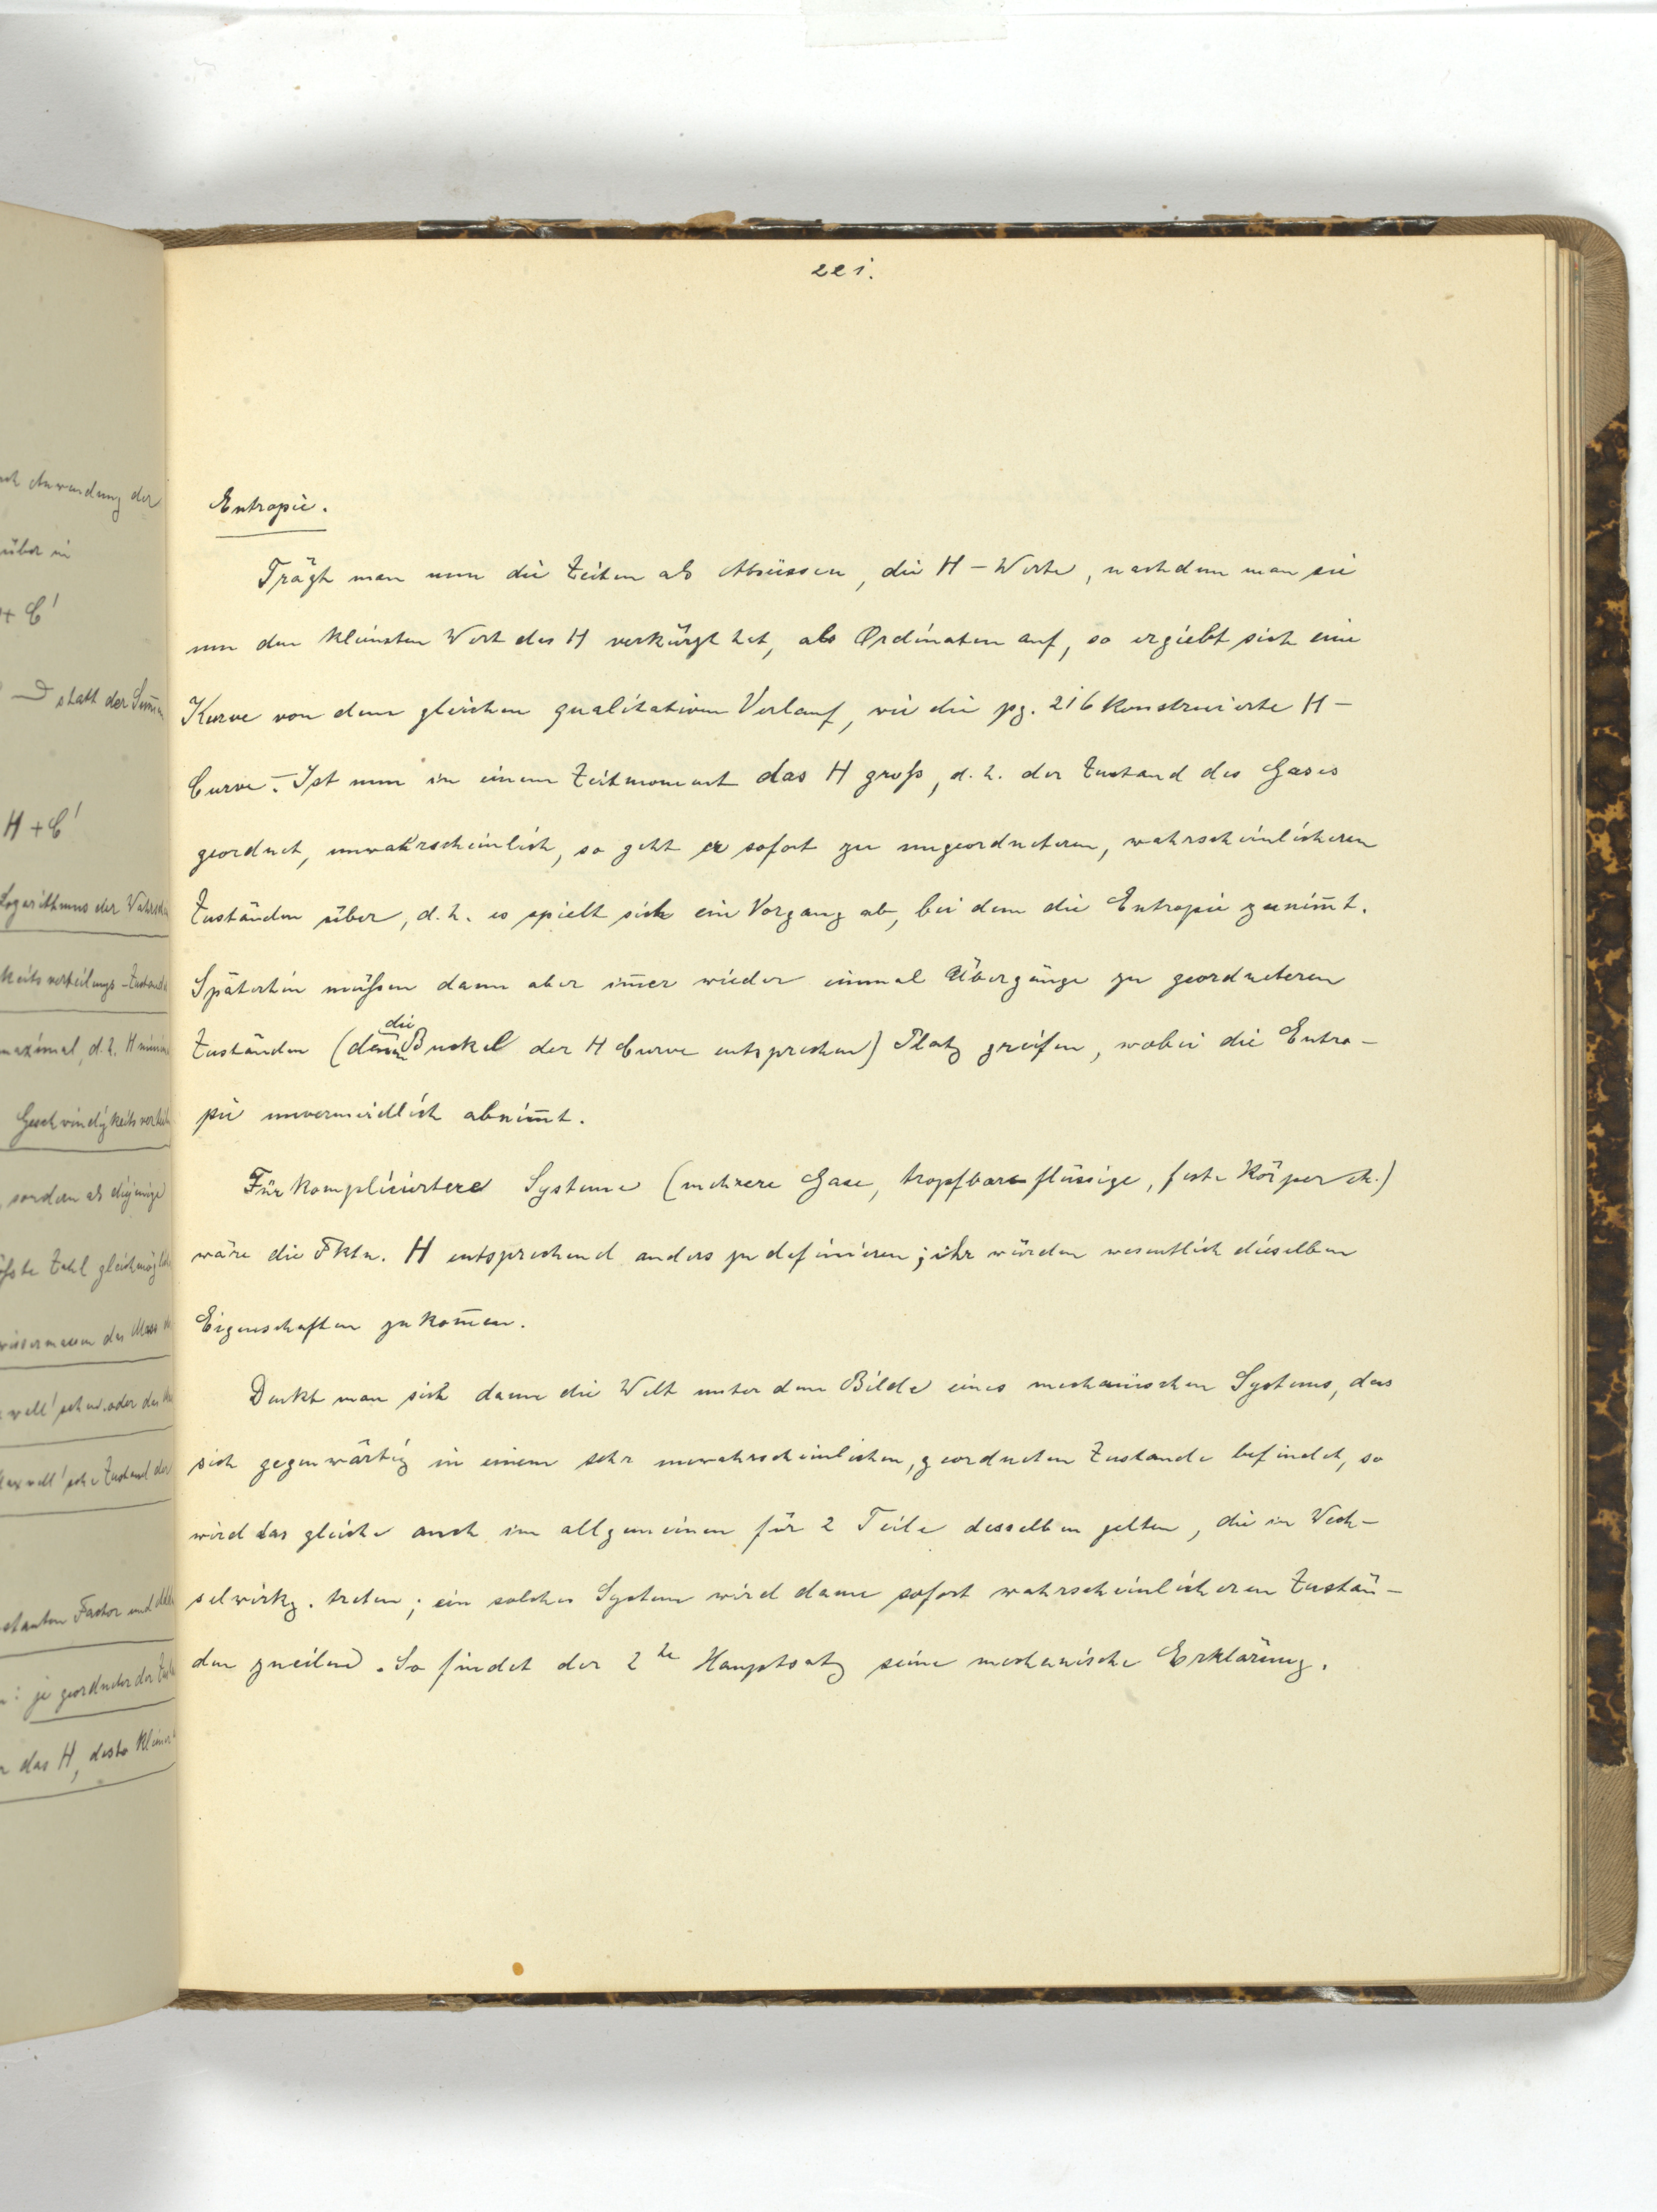 221.
Entropie.
Trägt man nun die Zeiten als Abscissen, die H-Werte, nachdem man sie
um den kleinsten Wert des H verkürzt hat, als Ordinaten auf, so ergiebt sich eine
Kurve von dem gleichen qualitativen Verlauf, wie die pg. 216 konstruierte H-
Curve. – Ist nun in einem Zeitmoment das H groß, d. h. der Zustand des Gases
geordnet, unwahrscheinlich, so geht er sofort zu ungeordneteren, wahrscheinlicheren
Zuständen über, d. h. es spielt sich ein Vorgang ab, bei dem die Entropie zunim̅t.
Späterhin müßen dann aber im̅er wieder einmal Übergänge zu geordneteren
die
Zuständen (denen Buckel der H Curve entsprechen) Platz greifen, wobei die Entro-
pie unvermeidlich abnim̅t.
Für kompliciertere Systeme (mehrere Gase, tropfbare flüssige, feste Körper etc.)
wäre die Fktn. H entsprechend anders zu definieren; ihr würden wesentlich dieselben
Eigenschaften zukom̅en.
Denkt man sich dann die Welt unter dem Bilde eines mechanischen Systems, das
sich gegenwärtig in einem sehr unwahrscheinlichen, geordneten Zustande befindet, so
wird das gleiche auch im allgemeinen für 2 Teile desselben gelten, die in Wech-
selwirkg. treten; ein solches System wird dann sofort wahrscheinlicheren Zustän-
den zueilen. So findet der 2te Hauptsatz seine mechanische Erklärung.
Anwendung der
über in
+ C'
statt der Sum̅en
H + C'
Logarithmus der
keitsverteilungs-Zustandes
maximal, d. h. H
Geschwindigkeits
, sondern als diejenige
Zahl gleichmöglich
das Mass
oder der
Zustand der
Factor und
: je geordneter der
das H, desto kleiner